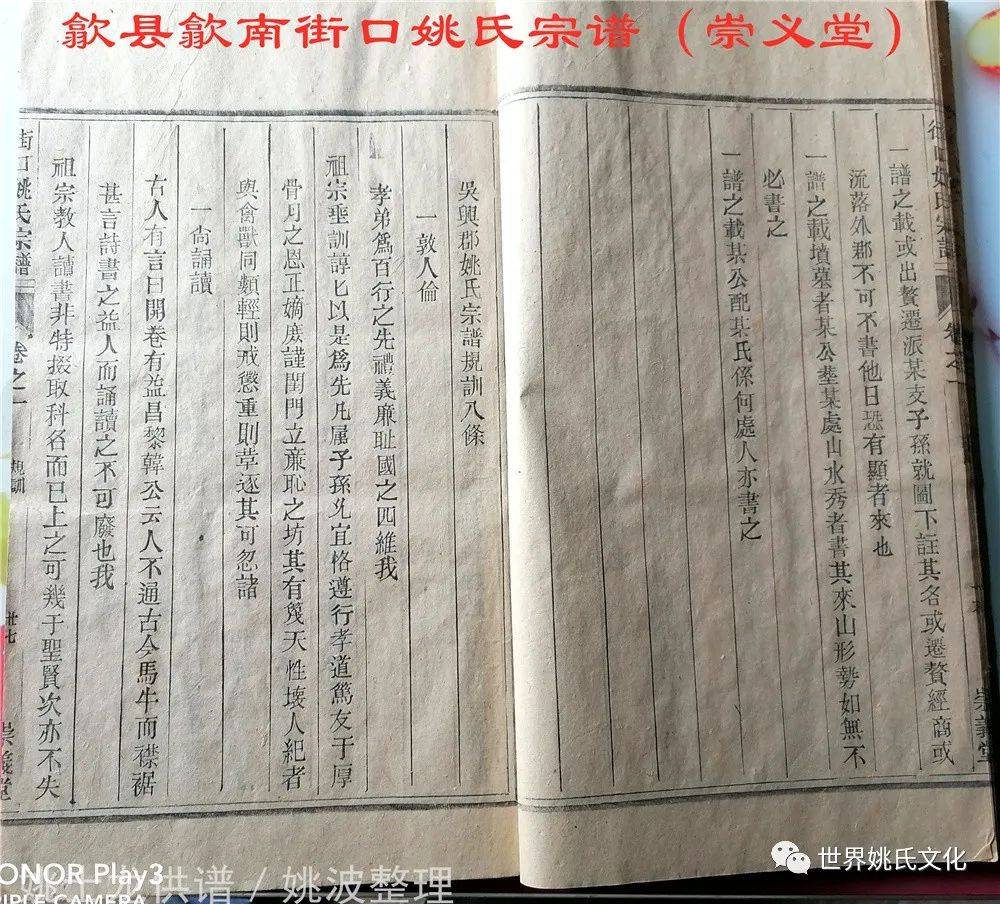 歙县歙南街口姚氏宗谱（崇义堂）
一譜之載或出贅遷派某支子孫就圖下註其名或遷贅經商或
流落外郡不可不書他日恐有顯者來也
一譜之載墳墓者某公塟某處山水秀者書其來山形勢如無不
必書之
一譜之載某公配某氏係何處人亦書之
崇義堂
吳興郡姚氏宗譜規訓八條
一敦人倫
孝弟爲百行之先禮義廉耻國之四維我
祖宗垂訓諄匕以是爲先凡属子孫宜恪遵行孝道篤友于厚
骨肉之恩正嫡庶謹閨門立亷恥之坊其有蔑天性壊人紀者
與禽獸同類輕則戒懲重則革逐其可忽諸
一尚誦讀
古人有言曰開卷有益昌黎韓公云人不通古今馬牛而襟裾
甚言詩書之益人而誦讀之不可廢也我
祖宗教人讀書非特掇取科名而已上之可幾于聖賢次亦不失
街口姚氏宗譜
卷之一
規訓
卅七
崇義堂
世界姚氏文化
HONOR Play3
TRIPLE CAMERA
供谱 / 姚波整理